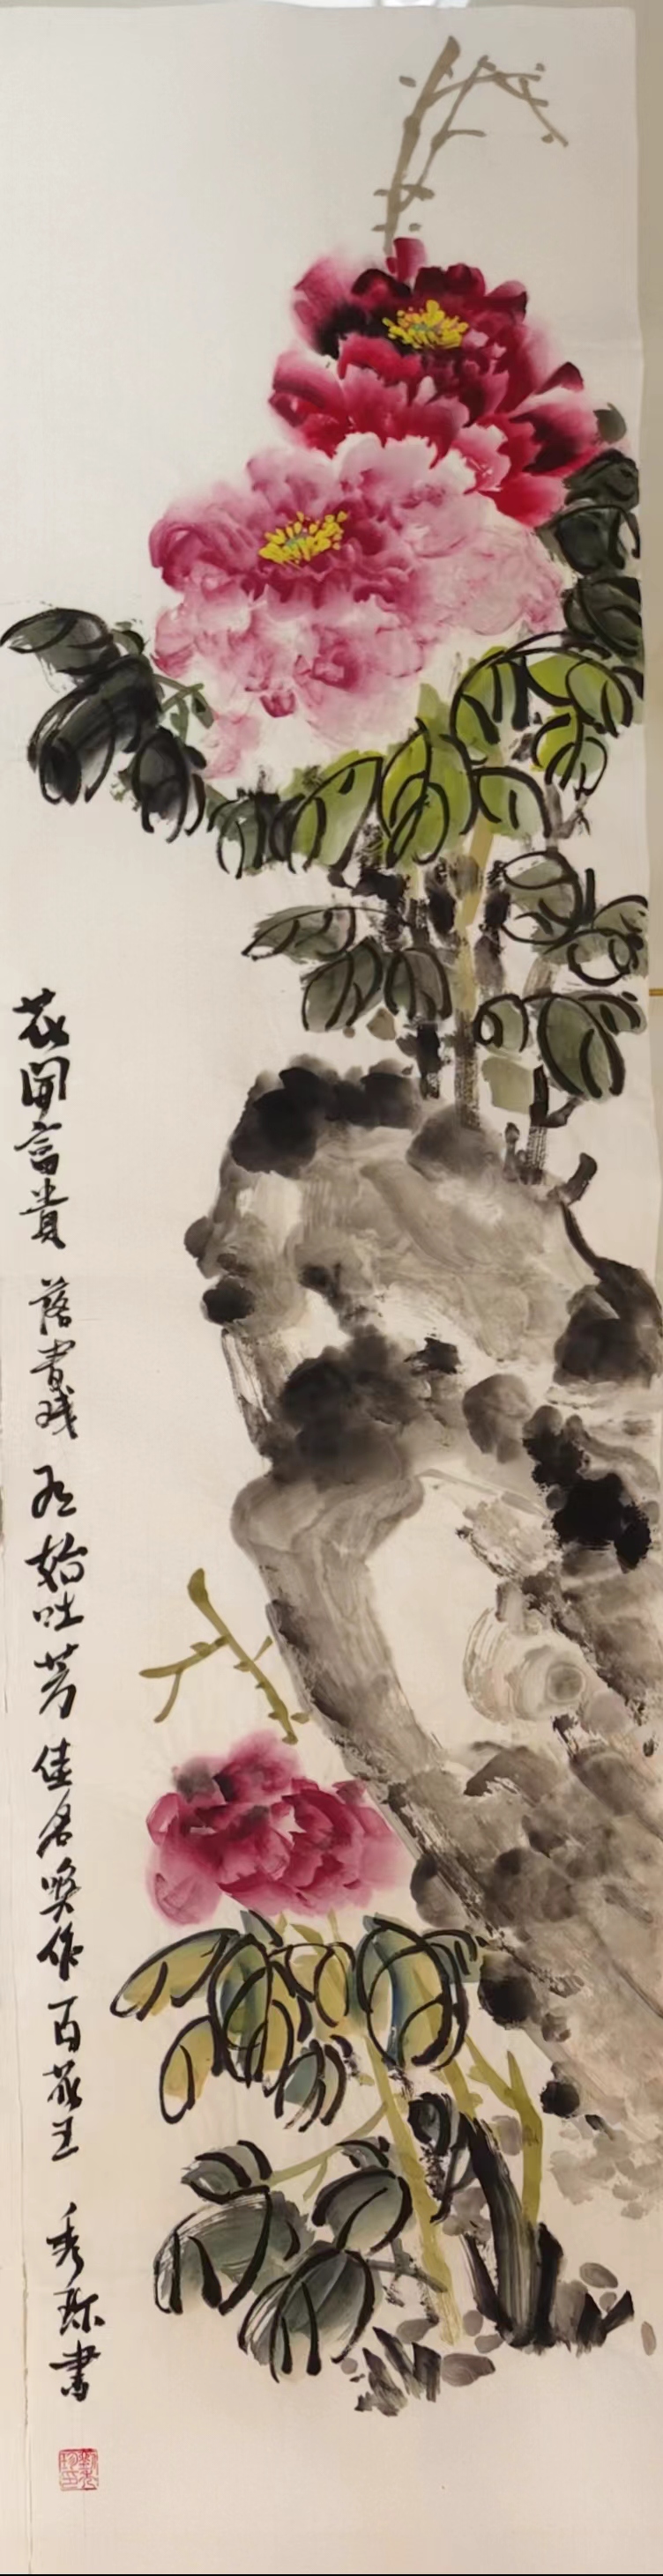 花開富貴 落盡残红始吐芳 佳名喚作百花王 秀珍書